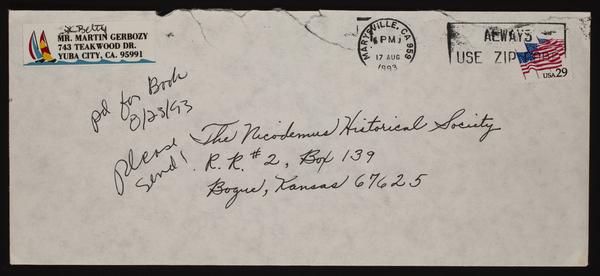 & Betty
MR. MARTIN GERBOZY
743 TEAKWOOD DR.
YUBA CITY, CA. 95991
MARYSVILLE, CA 959
PM
17 AUG
1993
ALWAYS
USE ZIP CODE
USA 29
pd for Book
8/23/93
Please
send!
The Nicodemus Historical Society
R. R. #2, Box 139
Bogue, Kansas 67625